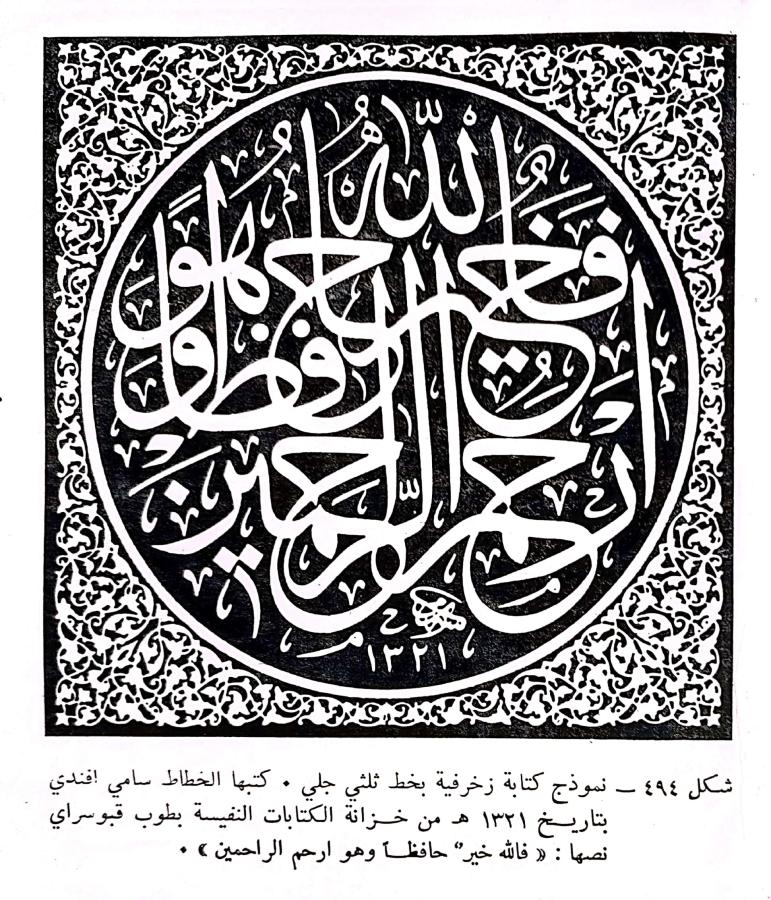 فالله خير حافظا وهو
ارحم الراحمين
١٣٢١
شكل ٤٩٤ — نموذج كتابة زخرفية بخط ثلثي جلي • كتبها الخطاط سامي افندي
بتاريخ ١٣٢١ هـ من خزانة الكتابات النفيسة بطوب قبوسراي
نصها : « فالله خير" حافظـاً وهو ارحم الراحمين » •